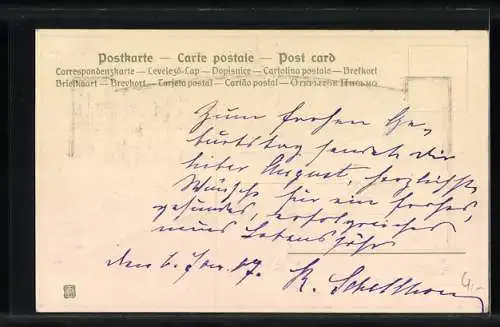 Postkarte — Carte postale — Post card
Correspondenzkarte — Levelező-Lap — Dopisnice — Cartolina postale — Brefkort
Briefkaart — Brevkort — Tarjeta postal — Cartão postal — Открытое Письмо
Zum frohen Ge-
burtstag sendet dir
lieber August, herzlichste
Wünsche für ein frohes,
gesundes, erfolgreiches
neues Lebensjahr
den 6. Jan. 07. K. Schellhorn
4,-